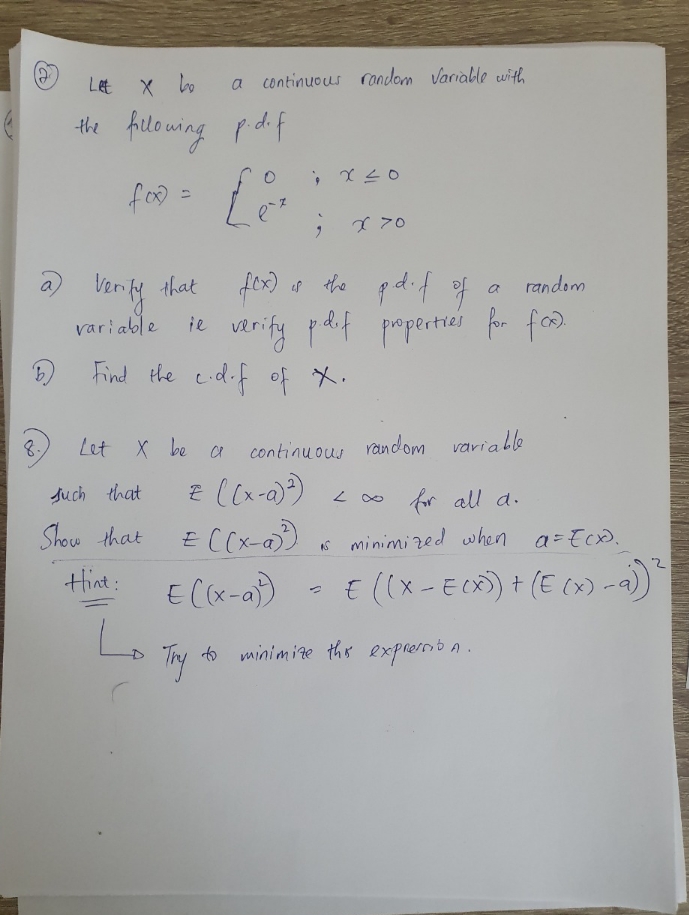 ② Let X be a continuous random variable with
the following p.d.f
f(x) = { 0 ; x ≤ 0
e^-x ; x > 0
a) Verify that f(x) is the p.d.f of a random
variable ie verify p.d.f properties for f(x).
b) Find the c.d.f of X.
8.) Let X be a continuous random variable
such that E((x-a)²) < ∞ for all a.
Show that E((x-a)²) is minimized when a = E(x).
Hint: E((x-a)²) = E((X - E(x)) + (E(x) - a))²
Try to minimize this expression.